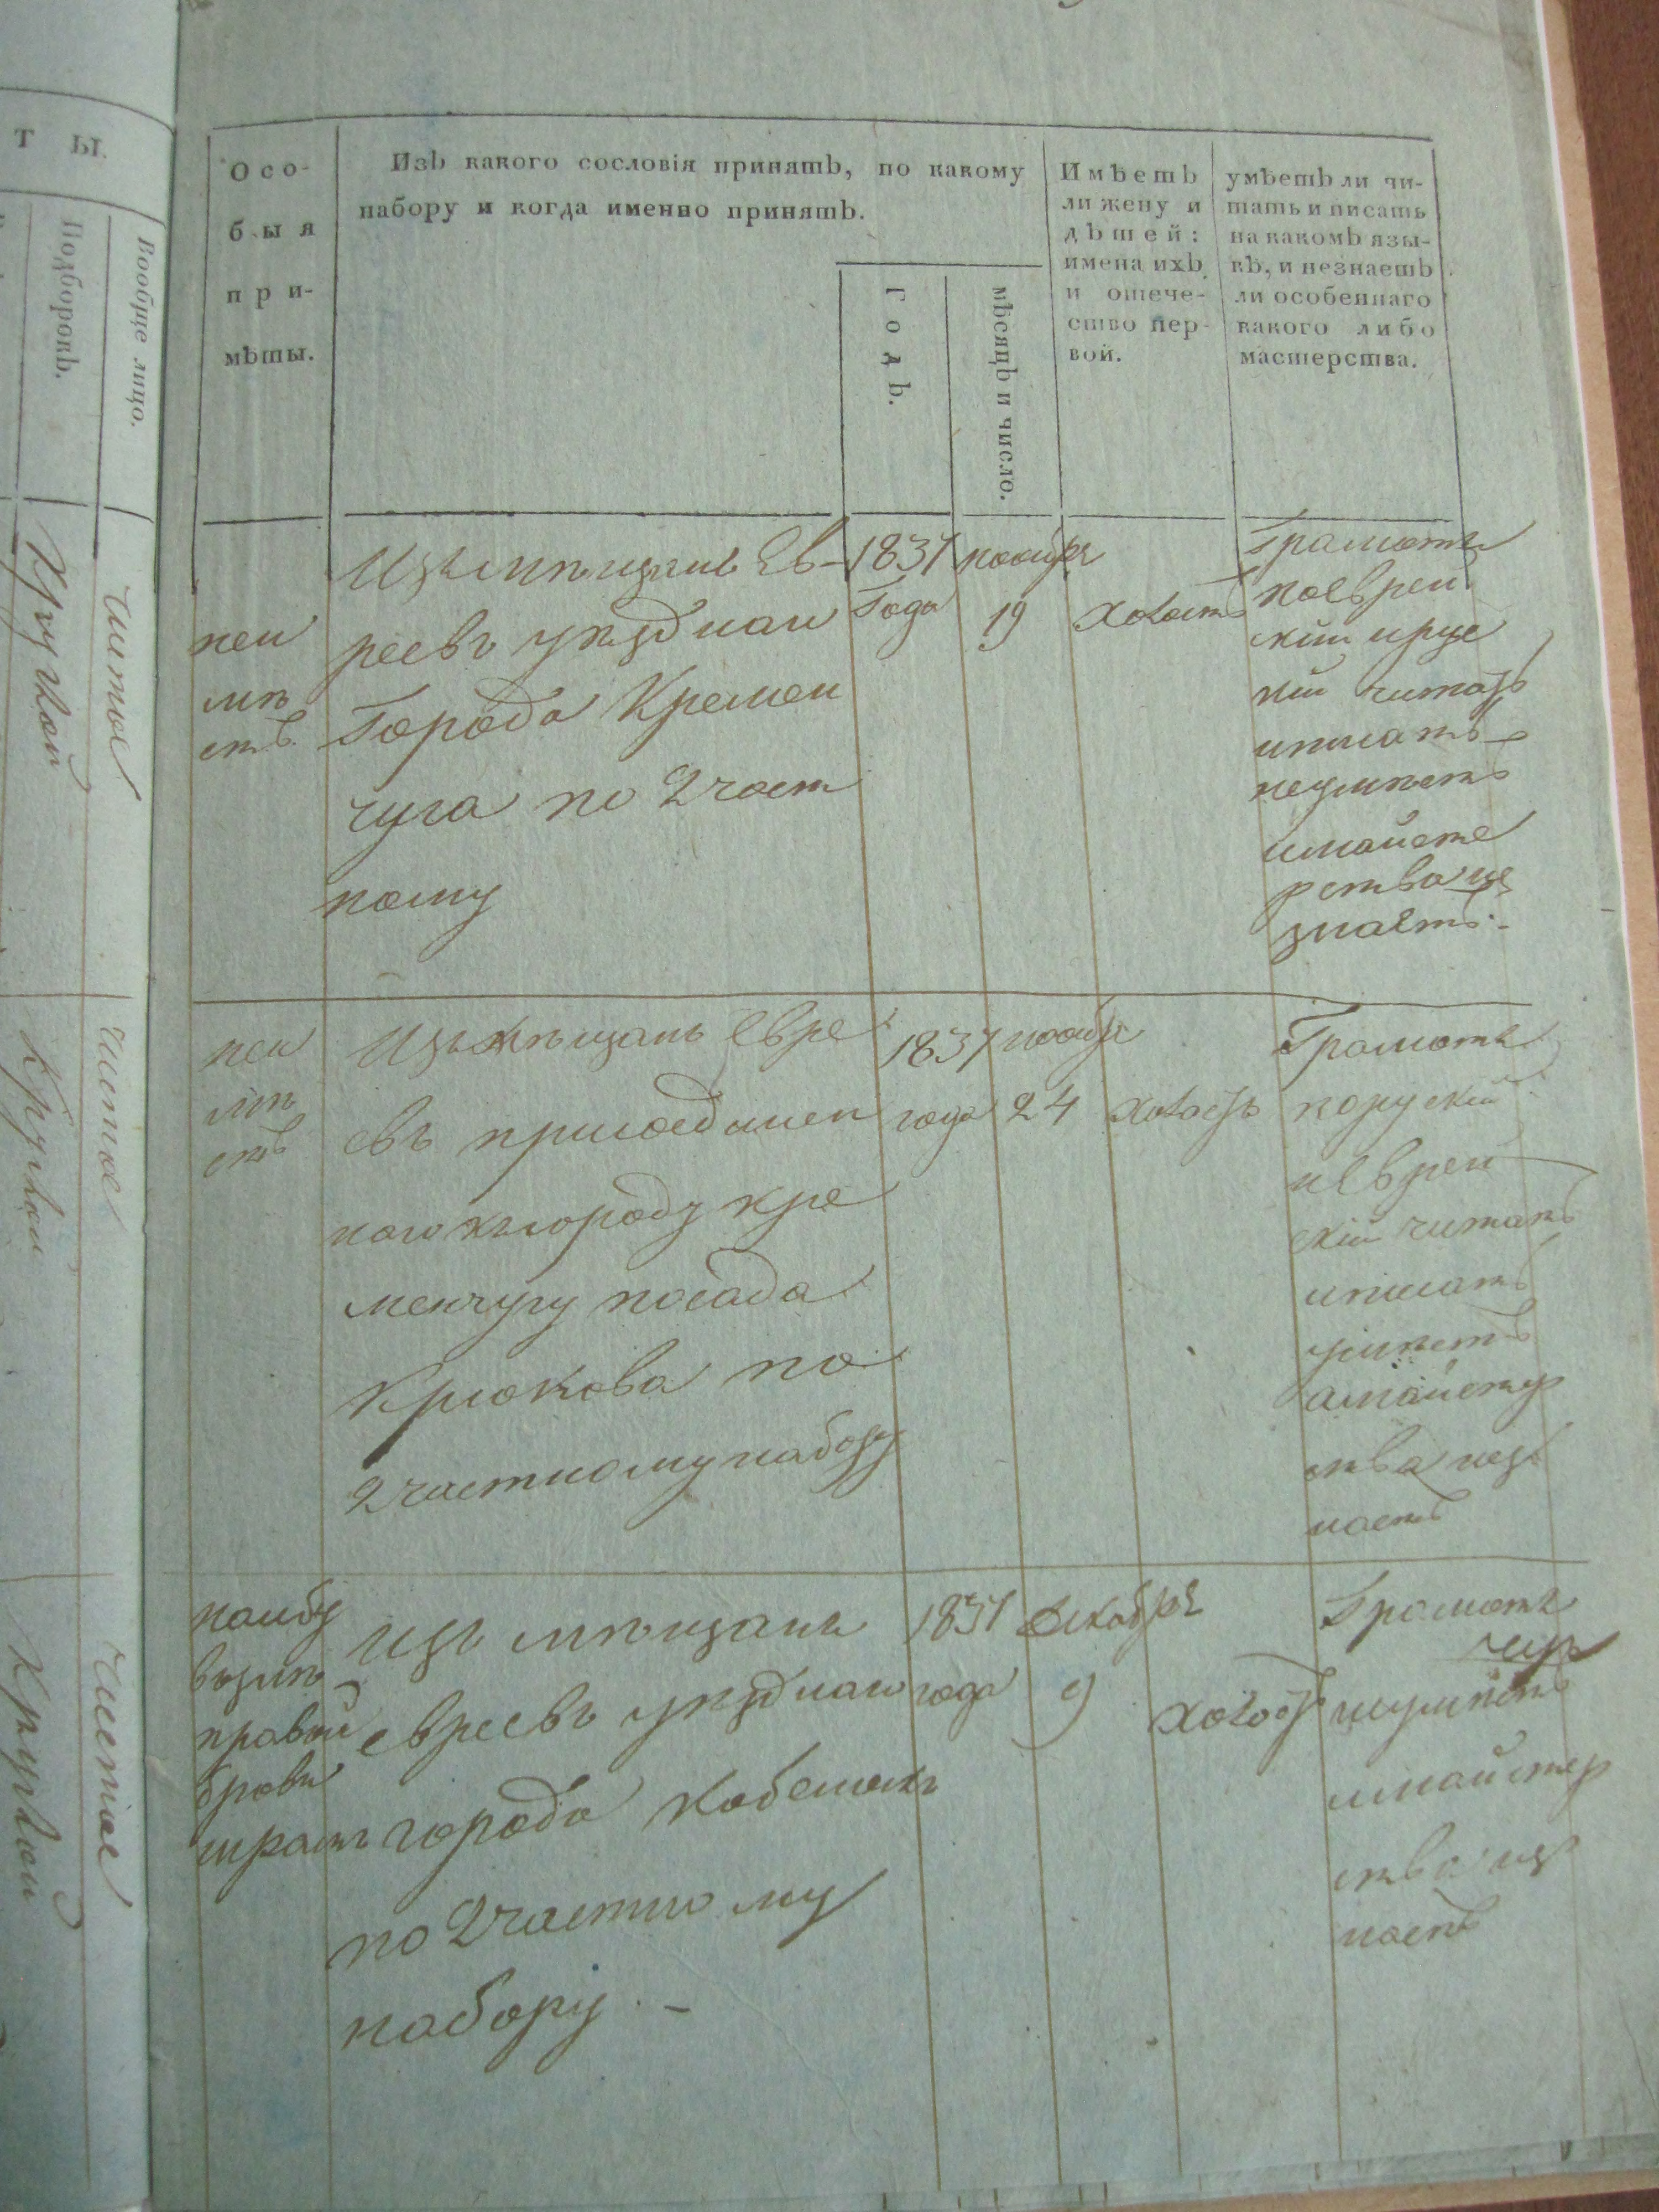 Т Ы.
Подборокъ.
Вообще лицо.
Круглой
Чистое
Круглой
Чистое
Круглой
Чистое
Осо-
быя
при-
мѣты.
Изъ какого сословія принятъ, по какому
набору и когда именно принятъ.
Годъ.
мѣсяцъ и число.
Имѣетъ
ли жену и
дѣтей:
имена ихъ
и отече-
ство пер-
вой.
умѣетъ ли чи-
тать и писать
на какомъ язы-
кѣ, и незнаетъ
ли особеннаго
какого либо
мастерства.
неи
мѣ
етъ
Изъ мѣщанъ Ев-
реевъ уѣзднаго
Города Кремен
чуга по 2 част
ному
1837
Года
ноября
19
Холостъ
Грамотѣ
поеврей
скій ируc
кій читать
иписать
неумѣетъ
имайсте
рства не
знаетъ.
неи
мѣ
етъ
Изъ мѣщанъ Евре
евъ присоединен
наго къгороду Кре
менчугу посада
Крюкова по
2 частному набору
1837
года
ноября
24
холостъ
Грамотѣ
поруский
иеврей
скій читать
иписать
умѣетъ
амайстер
ства нез
наетъ
правой
брови
шрамъ
Изъ мѣщанъ
евреевъ уѣзднаго
города Кобелякъ
по 2 частному
набору. -
1837
года
декабря
9
холостъ
Грамотѣ
неумѣетъ
имайстер
ства нез
наетъ